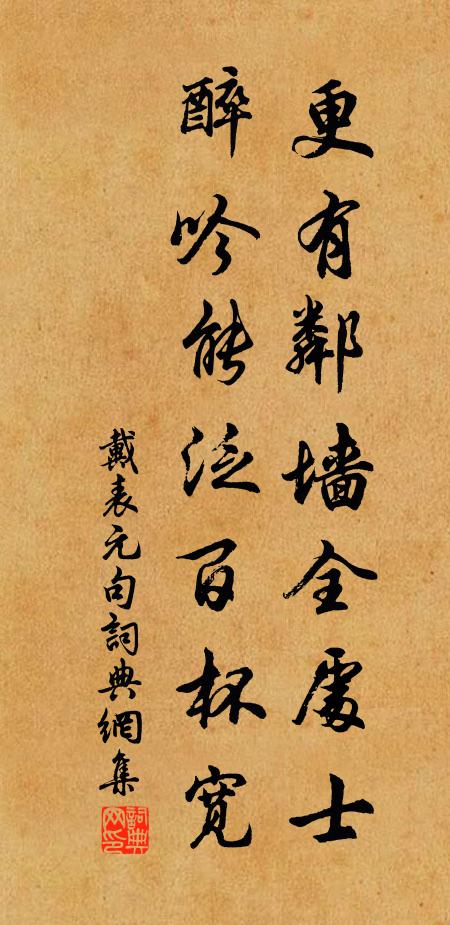 更有鄰墙全處士
醉吟能泛百杯寬
戴表元句詞典網集
詞典网印